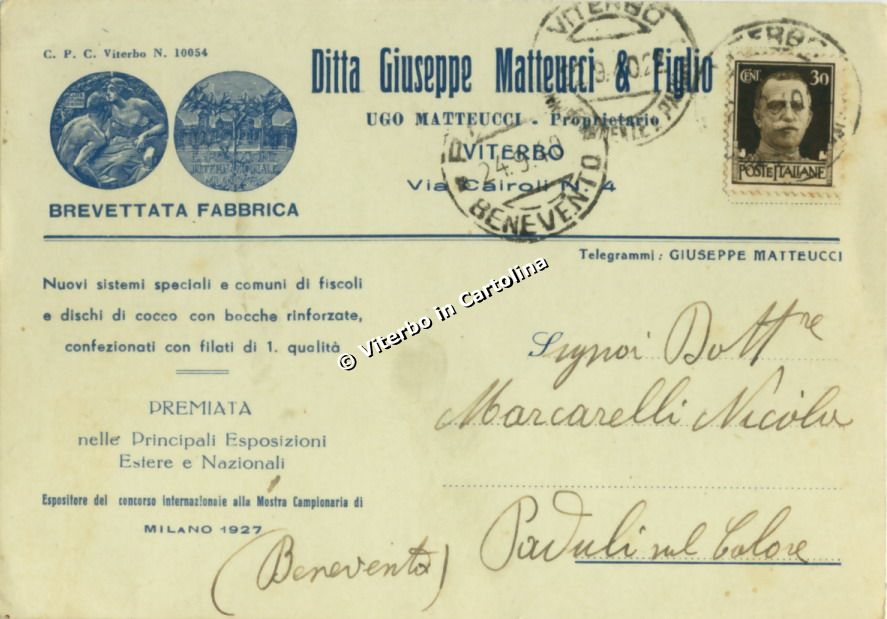 C. P. C. Viterbo N. 10054
Ditta Giuseppe Matteucci & Figlio
UGO MATTEUCCI - Proprietario
VITERBO
Via Cairoli N. 4
BREVETTATA FABBRICA
VITERBO
24.9.
BENEVENTO
CENT. 30
POSTE ITALIANE
Telegrammi: GIUSEPPE MATTEUCCI
Nuovi sistemi speciali e comuni di fiscoli
e dischi di cocco con bocche rinforzate,
confezionati con filati di 1. qualità
PREMIATA
nelle Principali Esposizioni
Estere e Nazionali
Espositore del concorso internazionale alla Mostra Campionaria di
MILANO 1927
© Viterbo in Cartolina
Signor Dottre
Marcarelli Nicola
Paduli sul Calore
(Benevento)